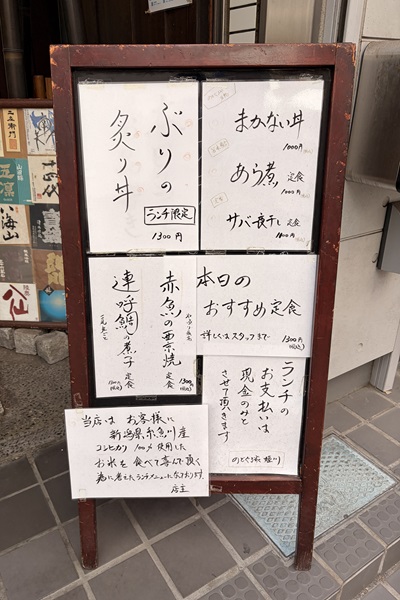 ぶりの
炙り丼
ランチ限定
1300円
まかない丼
1000円(税込)
あら煮 定食
1000円(税込)
サバ一夜干し 定食
1100円(税込)
本日の
おすすめ定食
詳しくはスタッフまで
1300円(税込)
赤魚の西京焼
定食
1300円(税込)
定食
ランチの
お支払いは
現金のみと
させて頂きます
当店は お客様に
新潟県糸魚川産
コシヒカリ 100%使用した
お米を 食べて喜んで頂く
為に考えたランチメニューになっております
店主
八海山
八仙